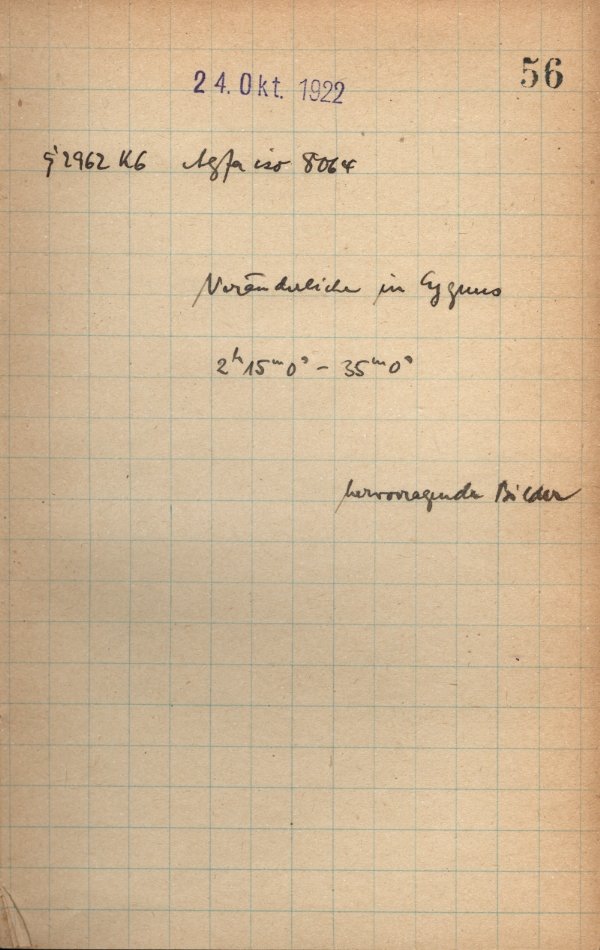 56
24. Okt. 1922
2962 K6 Agfa iso 8064
Veränderliche in Cygnus
2ʰ 15ᵐ 0ˢ – 35ᵐ 0ˢ
hervorragende Bilder